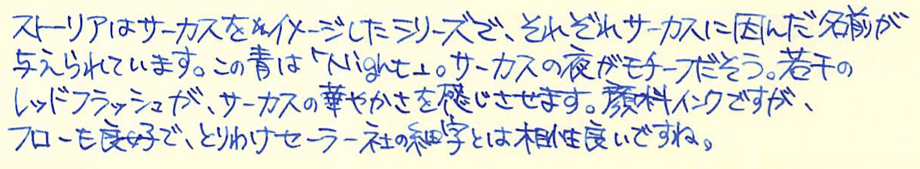 ストーリアはサーカスをイメージしたシリーズで、それぞれサーカスに因んだ名前が
与えられています。この青は「Night」。サーカスの夜がモチーフだそう。若干の
レッドフラッシュが、サーカスの華やかさを感じさせます。顔料インクですが、
フローも良好で、とりわけセーラー社の細字とは相性良いですね。